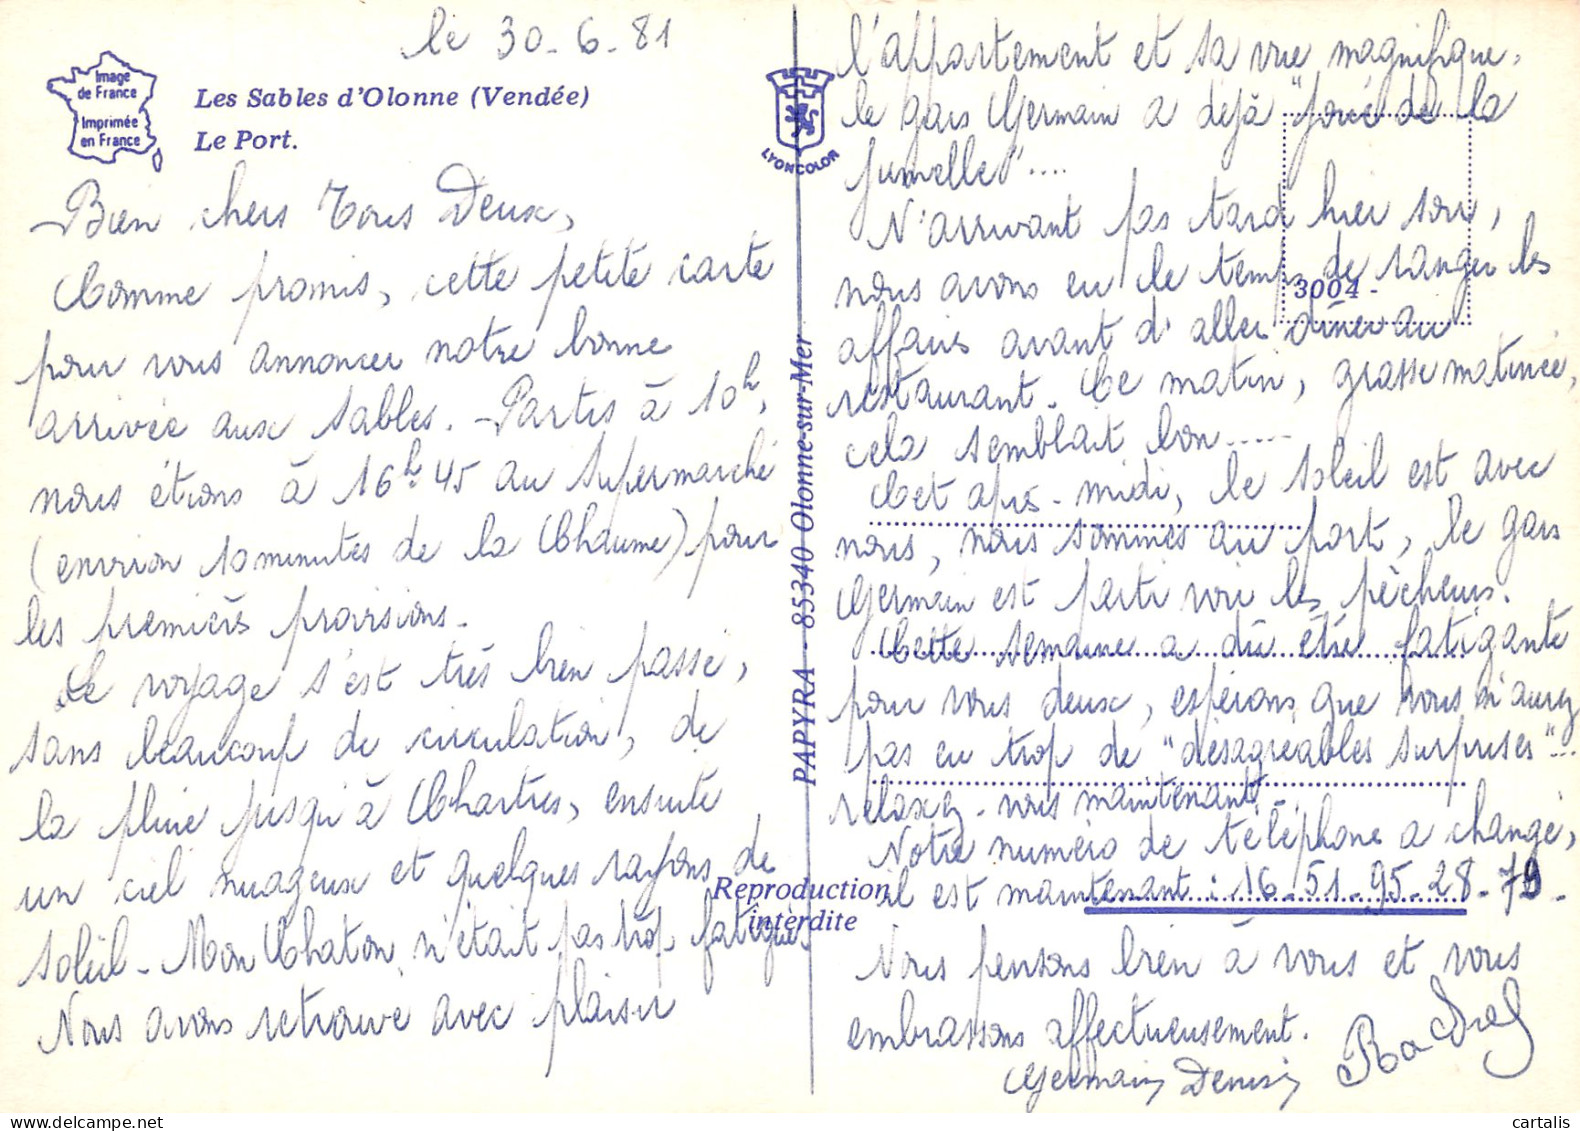 le 30-6-81
Image
de France
Imprimée
en France
Les Sables d'Olonne (Vendée)
Le Port.
Bien chers Tous Deux,
Comme promis, cette petite carte
pour vous annoncer notre bonne
arrivée aux Sables. - Partis à 10h,
nous étions à 16h 45 au supermarché
(environ 10 minutes de la Chaume) pour
les premières provisions.
Le voyage s'est très bien passé,
sans beaucoup de circulation, de
la pluie jusqu'à Chartres, ensuite
un ciel nuageux et quelques rayons de
soleil - Mon Chaton n'était pas trop fatigué.
Nous avons retrouvé avec plaisir
LYONCOLOR
PAPYRA - 85340 Olonne-sur-Mer
Reproduction
interdite
l'appartement et sa vue magnifique.
le gars Germain a déjà "joué de la
jumelle"....
N'arrivant pas tard hier soir,
nous avons eu le temps de ranger les
3004 -
affaires avant d'aller dîner au
restaurant. Ce matin, grasse matinée,
cela semblait bon.....
Cet après-midi, le soleil est avec
nous, nous sommes au port, le gars
Germain est parti voir les pêcheurs.
Cette semaine a dû être fatigante
pour vous deux, espérons que vous n'aurez
pas eu trop de "désagréables surprises"...
relaxez-vous maintenant.
Notre numéro de téléphone a changé,
il est maintenant : 16-51-95-28-79-
Nous pensons bien à vous et vous
embrassons affectueusement.
Germain, Denise,
cartalis